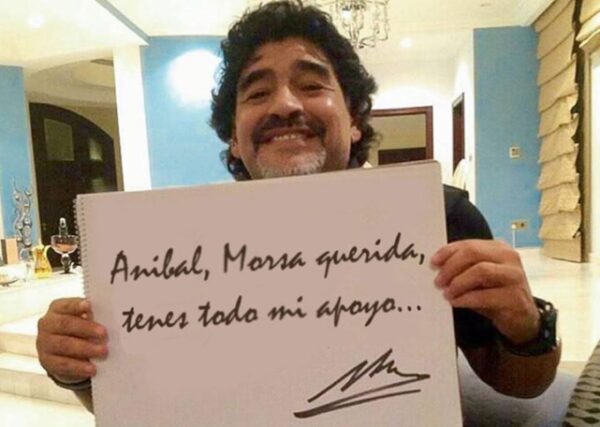 Anibal, Morsa querida,
tenes todo mi apoyo...